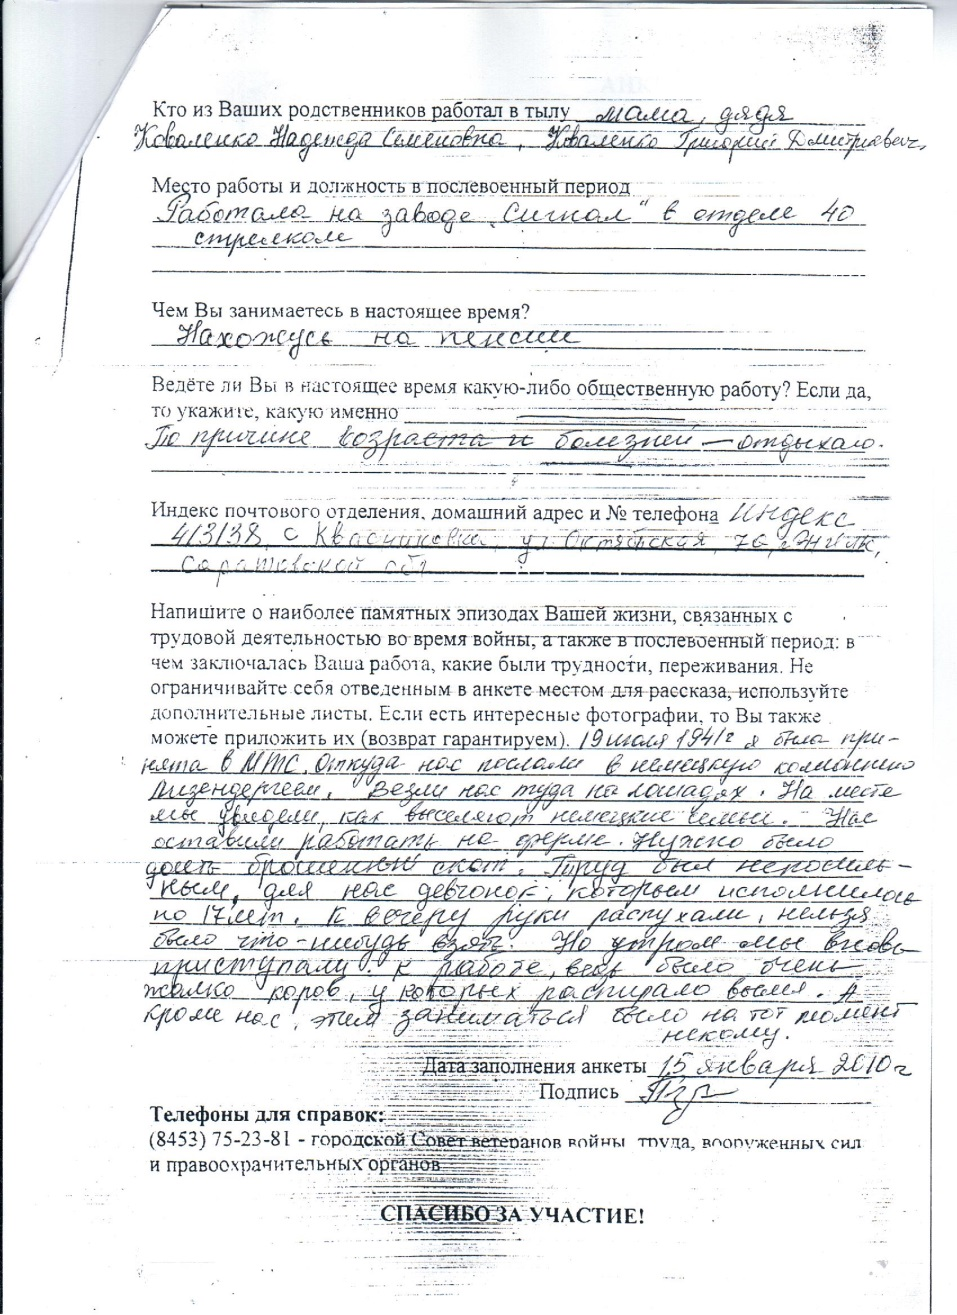 Кто из Ваших родственников работал в тылу мама, дядя
Коваленко Надежда Семеновна, Коваленко Григорий Дмитриевич,
Место работы и должность в послевоенный период
Работала на заводе „Сигнал" в отделе 40
стрелком
Чем Вы занимаетесь в настоящее время?
Нахожусь на пенсии
Ведёте ли Вы в настоящее время какую-либо общественную работу? Если да,
то укажите, какую именно
По причине возраста и болезней – отдыхаю.
Индекс почтового отделения, домашний адрес и № телефона индекс
413138, с Квасниковка, ул Октябрьская, 76,
Саратовской обл
Напишите о наиболее памятных эпизодах Вашей жизни, связанных с
трудовой деятельностью во время войны, а также в послевоенный период: в
чем заключалась Ваша работа, какие были трудности, переживания. Не
ограничивайте себя отведенным в анкете местом для рассказа, используйте
дополнительные листы. Если есть интересные фотографии, то Вы также
можете приложить их (возврат гарантируем). 19 июля 1941г я была при-
нята в МТС. Откуда нас послали в немецкую
Везли нас туда на лошадях. На месте
мы увидели, как выселяют немецкие семьи. Нас
оставили работать на ферме. Нужно было
доить брошенный скот. Труд был непосиль-
ным, для нас девчонок, которым исполнилось
по 17 лет. К вечеру руки распухали, нельзя
было что-нибудь взять. Но утром мы вновь
приступали к работе, ведь было очень
жалко коров, у которых распирало вымя. А
кроме нас, этим заниматься было на тот момент
некому.
Дата заполнения анкеты 15 января 2010г
Подпись
Телефоны для справок:
(8453) 75-23-81 - городской Совет ветеранов войны, труда, вооруженных сил
и правоохранительных органов
СПАСИБО ЗА УЧАСТИЕ!